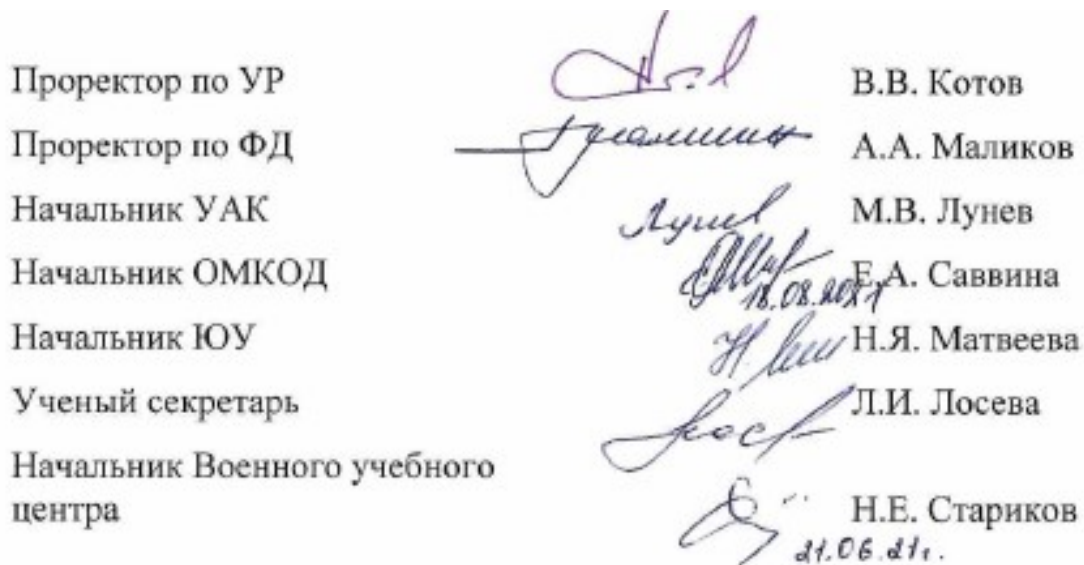 Проректор по УР В.В. Котов
Проректор по ФД А.А. Маликов
Начальник УАК Лунев М.В. Лунев
Начальник ОМКОД Е.А. Саввина
18.08.2021
Начальник ЮУ Н.Я. Матвеева
Ученый секретарь Л.И. Лосева
Начальник Военного учебного
центра Н.Е. Стариков
21.06.21г.